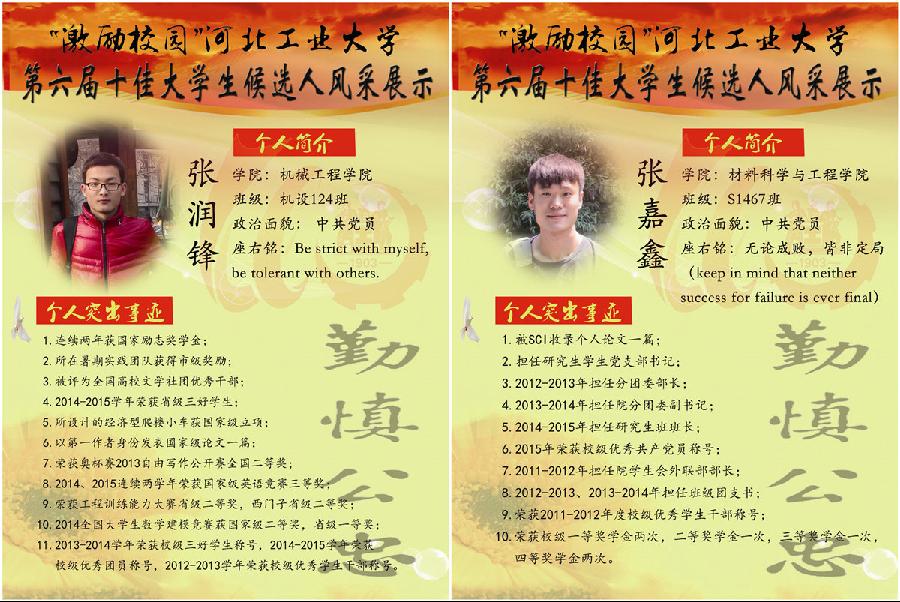 “激励校园”河北工业大学
第六届十佳大学生候选人风采展示
个人简介
张润锋
学院：机械工程学院
班级：机设124班
政治面貌：中共党员
座右铭：Be strict with myself,
be tolerant with others.
1903
个人突出事迹
1. 连续两年获国家励志奖学金；
2. 所在暑期实践团队获得市级奖励；
3. 被评为全国高校文学社团优秀干部；
4. 2014-2015学年荣获省级三好学生；
5. 所设计的经济型爬楼小车获国家级立项；
6. 以第一作者身份发表国家级论文一篇；
7. 荣获奥林赛2013自由写作公开赛全国二等奖；
8. 2014、2015连续两学年荣获国家级英语竞赛三等奖；
9. 荣获工程训练能力大赛省级二等奖，西门子省级二等奖；
10. 2014全国大学生数学建模竞赛获国家级二等奖，省级一等奖；
11. 2013-2014学年荣获校级三好学生称号，2014-2015学年荣获
校级优秀团员称号，2012-2013学年荣获校级优秀学生干部称号。
勤慎公忠
“激励校园”河北工业大学
第六届十佳大学生候选人风采展示
个人简介
张嘉鑫
学院：材料科学与工程学院
班级：S1467班
政治面貌：中共党员
座右铭：无论成败，皆非定局
（keep in mind that neither
success for failure is ever final）
1903
个人突出事迹
1. 被SCI收录个人论文一篇；
2. 担任研究生学生党支部书记；
3. 2012-2013年担任分团委部长；
4. 2013-2014年担任院分团委副书记；
5. 2014-2015年担任研究生班班长；
6. 2015年荣获校级优秀共产党员称号；
7. 2011-2012年担任院学生会外联部部长；
8. 2012-2013、2013-2014年担任班级团支书；
9. 荣获2011-2012年度校级优秀学生干部称号；
10. 荣获校级一等奖学金两次，二等奖学金一次，三等奖学金一次，
四等奖学金两次。
勤慎公忠